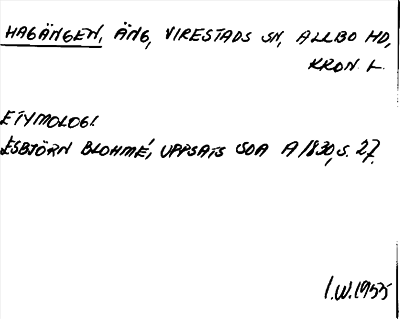 HAGÄNGEN, ÄNG, VIRESTADS SN, ALLBO HD,
KRON. L.
ETYMOLOGI
ESBJÖRN BLOHMÉ, UPPSATS SOA A 1830, S. 27.
I.W. 1955